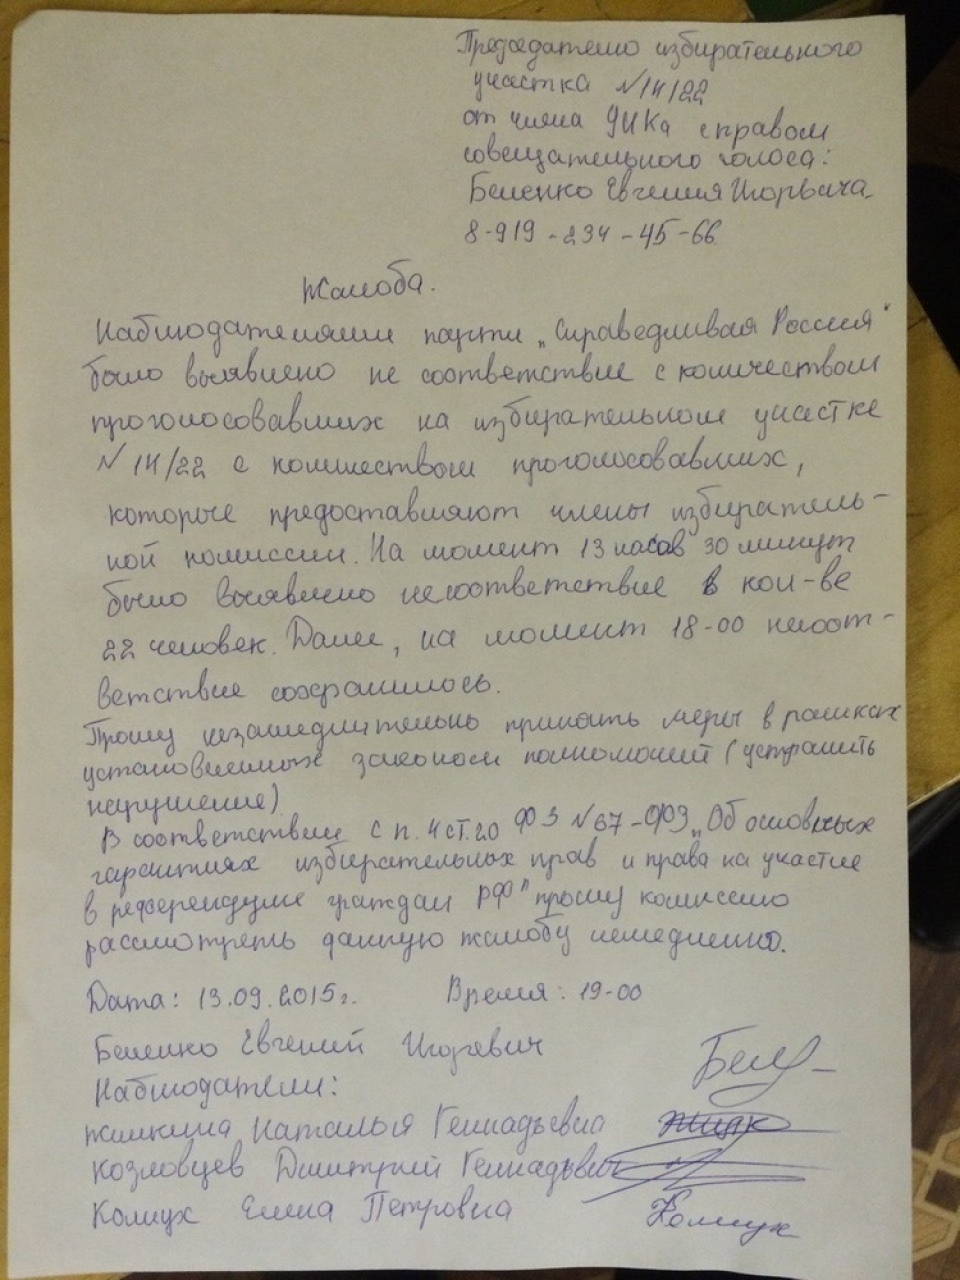 Председателю избирательного
участка №14/22
от члена УИКа с правом
совещательного голоса:
Беленко Евгения Игорьвича
8-919-234-45-66
Жалоба.
Наблюдателями парти „Справедливая Россия"
было выявлено не соответствие с количеством
проголосовавших на избирательном участке
№14/22 с количеством проголосовавших,
которые предоставляют члены избиратель-
ной комиссии. На момент 13 часов 30 минут
было выявлено несоответствие в кол-ве
22 человек. Далее, на момент 18-00 несоот-
ветствие сохранилось.
Прошу незамедлительно принять меры в рамках
установленных законом полномочий (устранить
нарушение)
В соответствие с п. 4 ст. 20 ФЗ №67-ФЗ „Об основных
гарантиях избирательных прав и права на участие
в референдуме граждан РФ" прошу комиссию
рассмотреть данную жалобу немедленно.
Дата: 13.09.2015г. Время: 19-00
Беленко Евгений Игоревич
Наблюдатели:
Жилкина Наталья Геннадьевна
Козловцев Дмитрий Геннадьвич
Колиух Елена Петровна Колиух